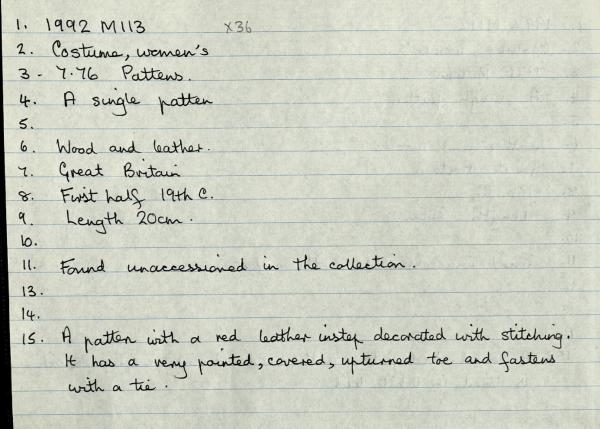 1. 1992 M113 X36
2. Costume, women's
3 - 7.76 Pattens.
4. A single patten
5.
6. Wood and leather.
7. Great Britain
8. First half 19th C.
9. Length 20cm.
10.
11. Found unaccessioned in the collection.
13.
14.
15. A patten with a red leather instep decorated with stitching.
It has a very pointed, covered, upturned toe and fastens
with a tie.